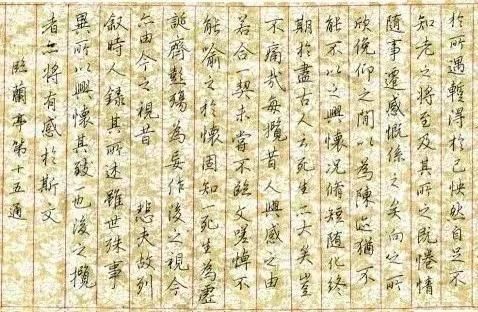 於所遇暫得於己快然自足不
知老之將至及其所之既惓情
隨事遷感慨係之矣向之所
欣俛仰之間以為陳迹猶不
能不以之興懷況脩短隨化終
期於盡古人云死生亦大矣豈
不痛哉每攬昔人興感之由
若合一契未嘗不臨文嗟悼不
能喻之於懷固知一死生為虛
誕齊彭殤為妄作後之視今
亦由今之視昔 悲夫故列
敘時人錄其所述雖世殊事
異所以興懷其致一也後之攬
者亦將有感於斯文
臨蘭亭第十五通